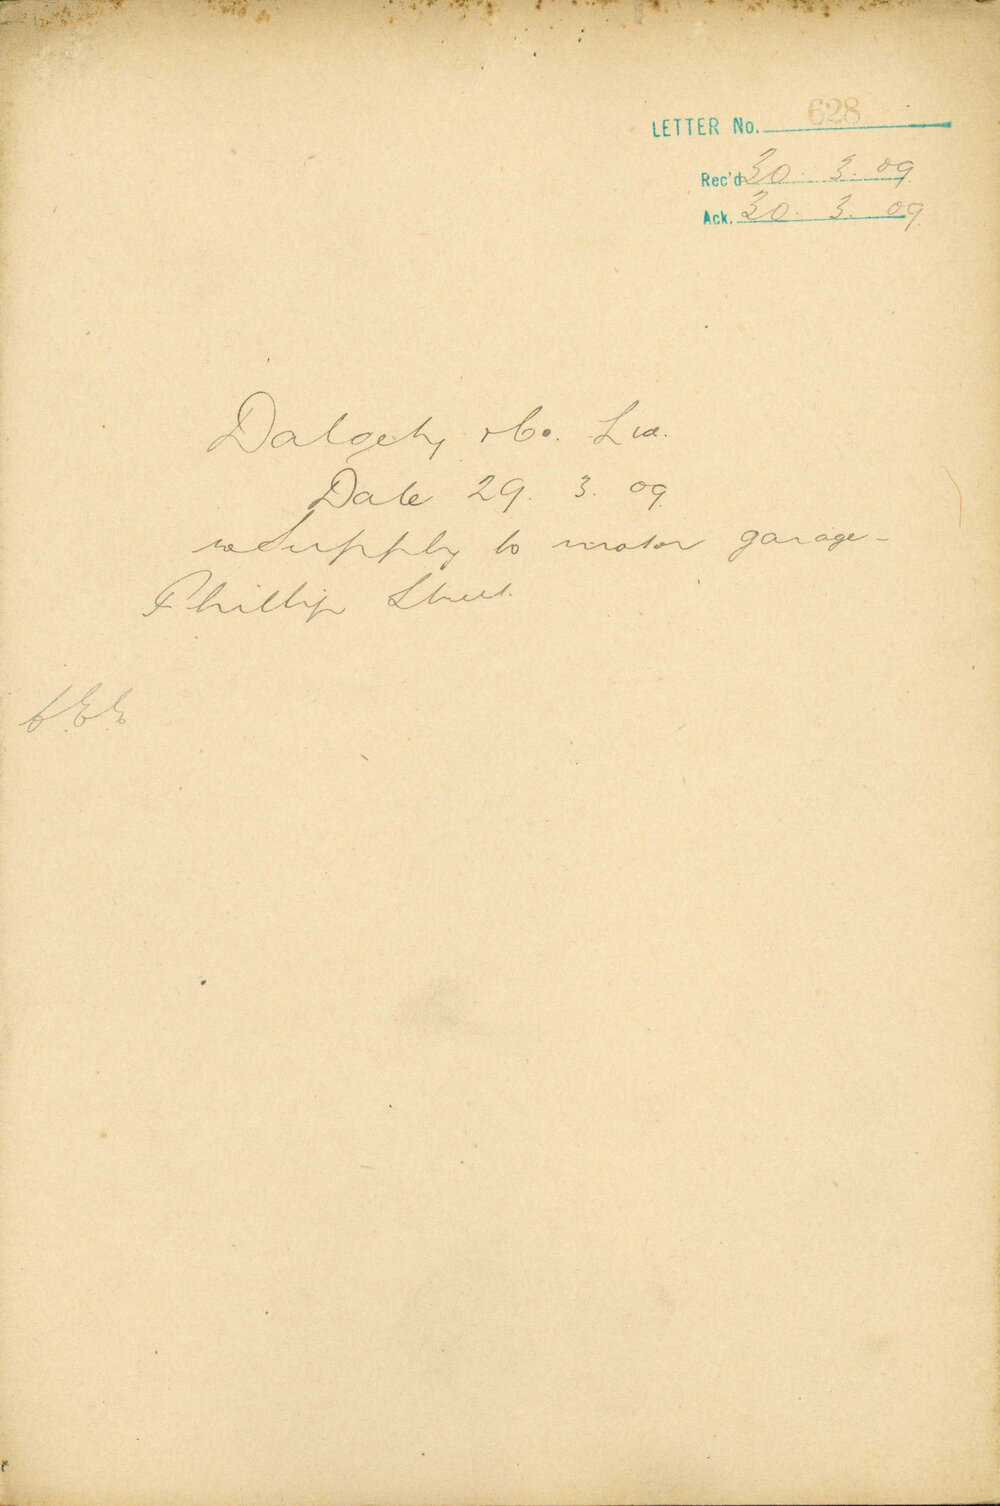 LETTER No. 628
Rec'd 30. 3. 09.
Ack. 30. 3. 09.
Dalgety & Co. Ltd.
Date 29. 3. 09
re Supply to motor garage -
Phillip Street.
C.E.E